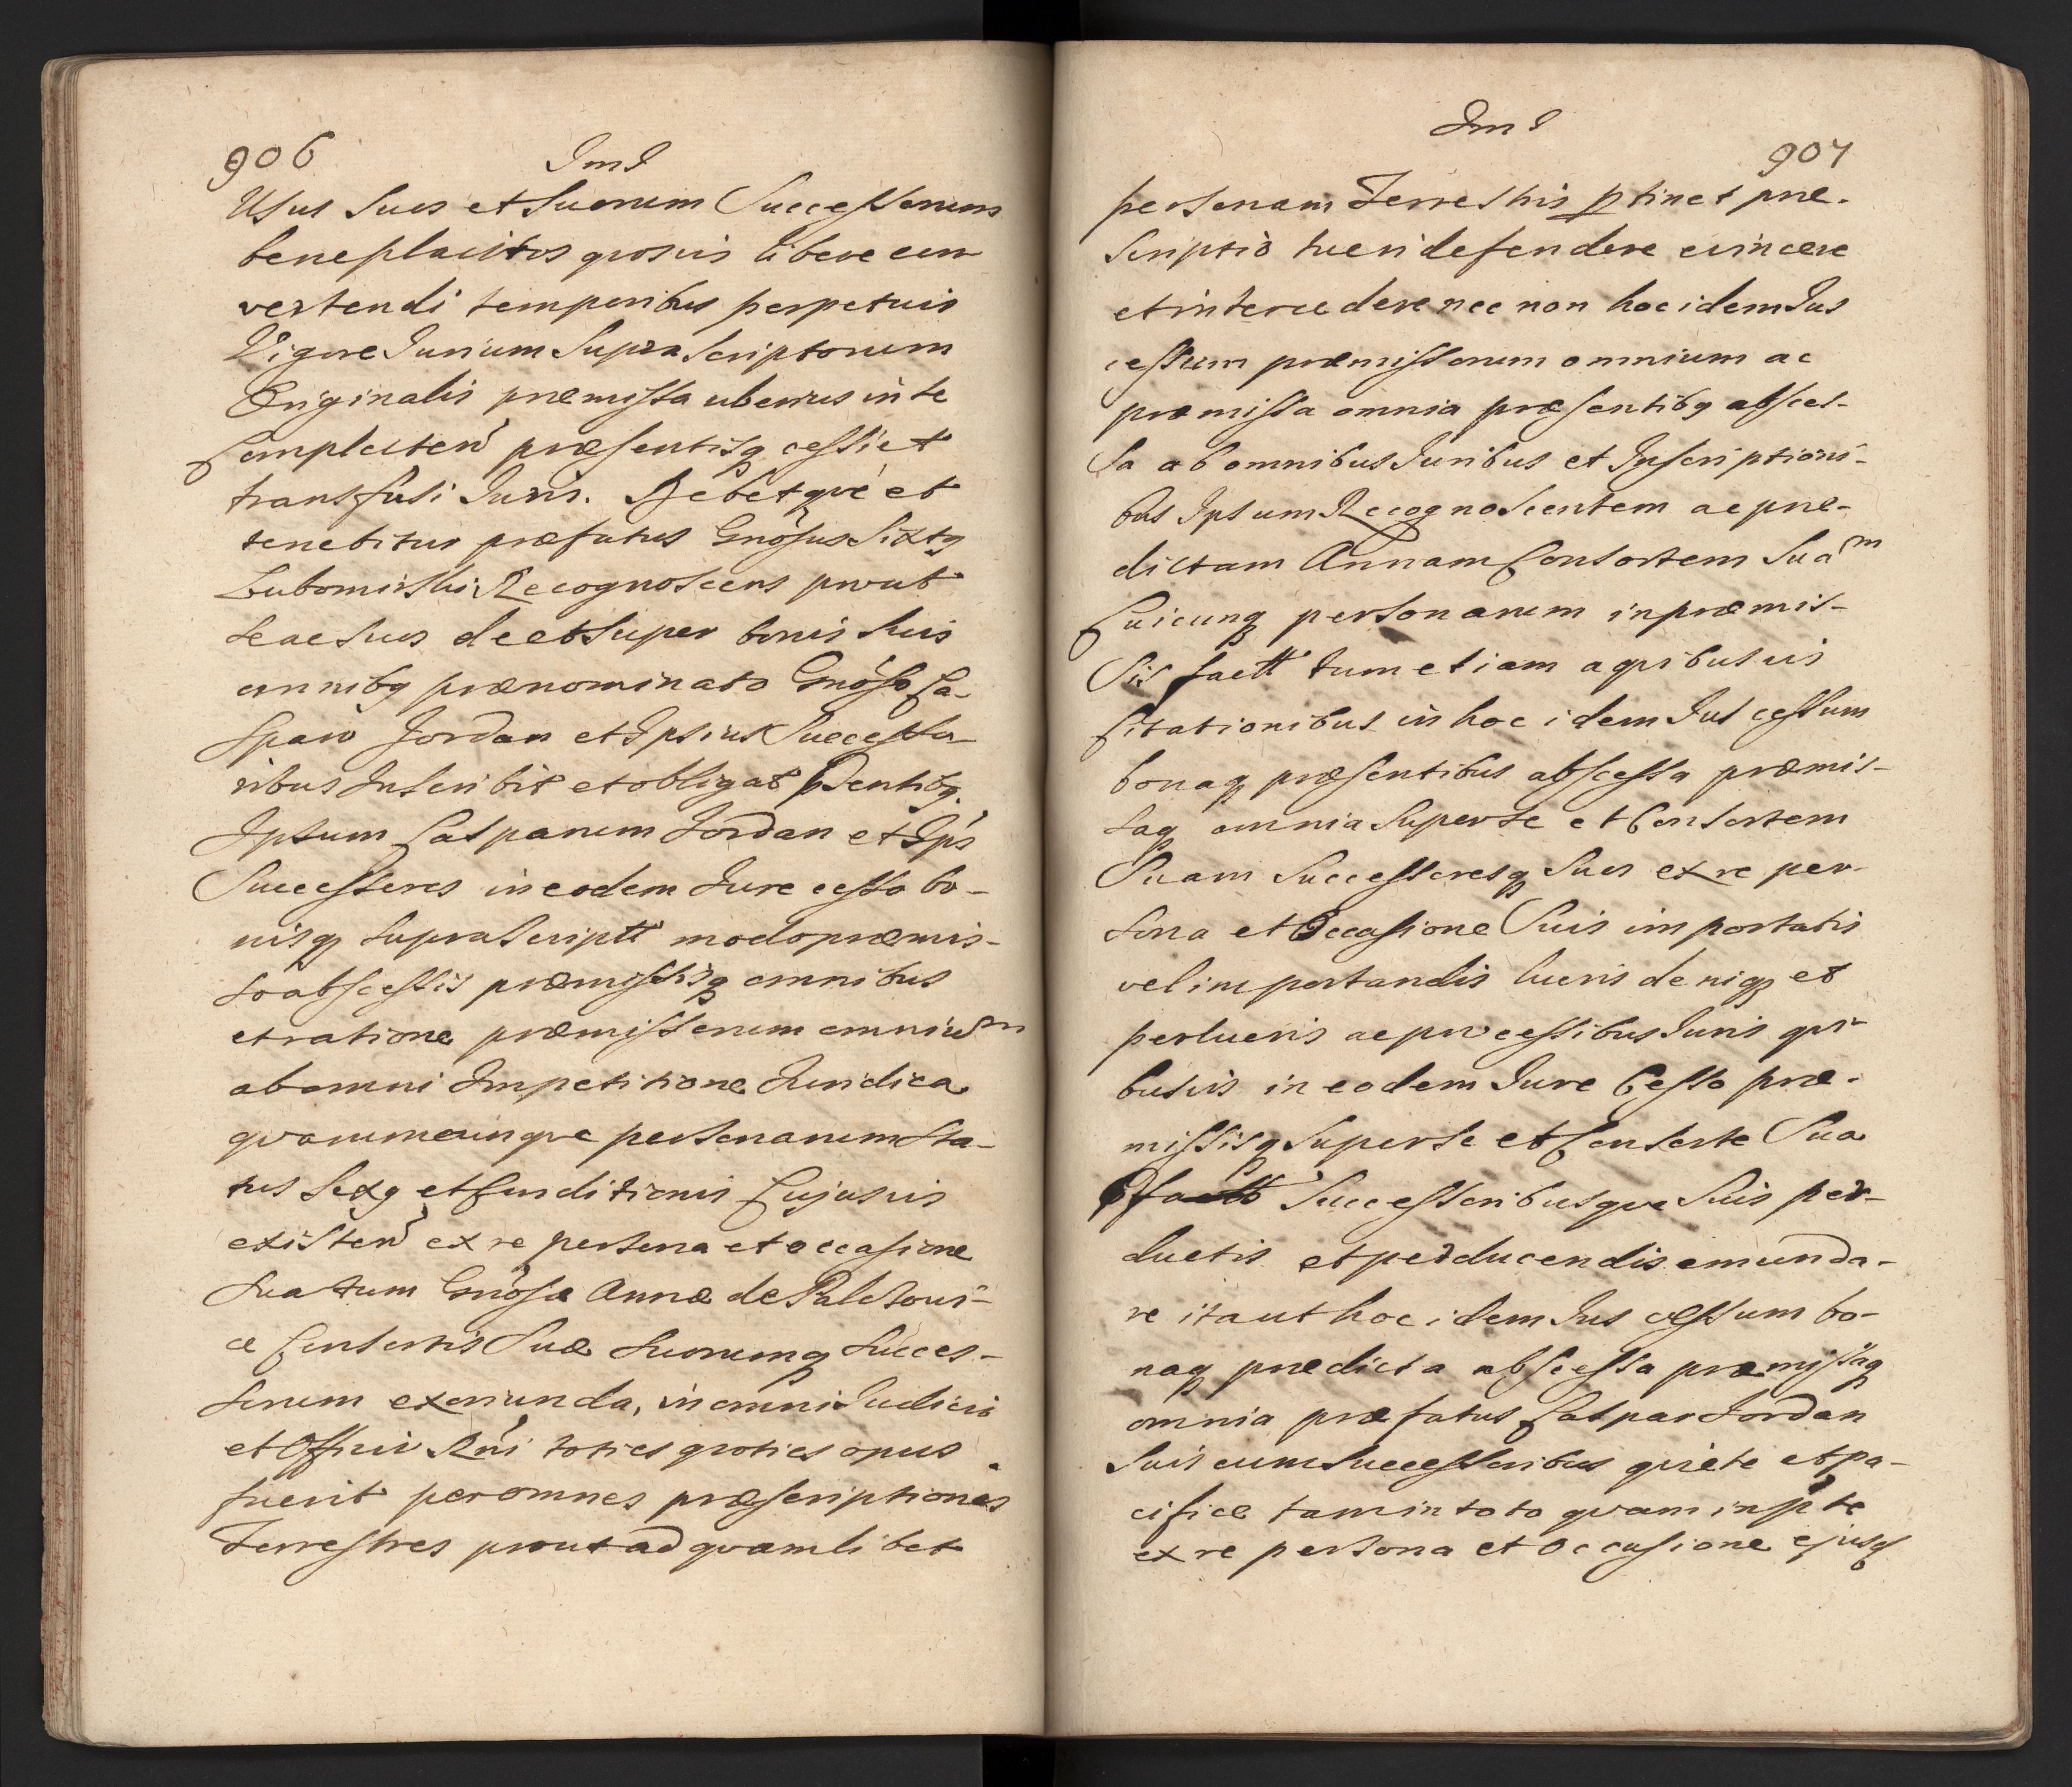 906
Jms
Usus suos et suorum Successorum
beneplacitos qvosvis libere con
vertendi temporibus perpetuis
Vigore Jurium supra scriptorum
Originalis præmissa uberius in se
Complecten præsentisq cessi et
transfusi Juris. Debetqve et
tenebitur præfatus Gnosus Sixtq
Lubomirski Recognoscens prout
se ac suos de et super bonis suis
omnibq prænominato Gnoso Ca-
sparo Jordan et Ipsius Successo-
ribus Inscribit et obligat pntibq
Ipsum Casparum Jordan et Ips
Successores in eodem Jure cesso bo-
nisq supra scriptt modo præmis-
so abscessis præmissisq omnibus
et ratione præmissorum omnium
ab omni Impetitione Juridica
qvarumcunqve personarum sta-
tus sexq et Conditionis Cujusvis
existen ex re persona et occasione
sua tum Gnosæ Annæ de
æ Consortis Suæ suorumq succes-
sorum exoriunda, in omni Judicio
et Officio Rni toties qvoties opus
fuerit per omnes præscriptiones
Terrestres prout ad qvamlibet
Jms
907
personam Terrestris ptinet præ-
scriptio tueri defendere evincere
et intercedere nec non hoc idem Jus
cessum præmissorum omnium ac
præmissa omnia præsentibq absces-
sa ab omnibus Juribus et Inscriptioni-
bus Ipsum Recognoscentem ac præ-
dictam Annam Consortem suam
Cuicunq personarum in præmis-
sis factt tum etiam a qvibusvis
Citationibus in hoc idem Jus cessum
bonaq præsentibus abscessa præmis-
saq omnia super se et Consortem
Suam Successoresq suos ex re per-
sona et Occasione Suis importatis
vel importandis lucris deniq et
perlucris ac processibus Juris qvi-
busvis in eodem Jure Cesso præ-
missisq super se et Consorte Sua
factis Successoribusqve suis per-
ductis et perducendis emunda-
re ita ut hoc idem Jus cessum bo-
naq prædicta abscessa præmissaq
omnia præfatus Caspar Jordan
suis cum successoribus qviete et pa-
cifice tam in toto qvam in pte
ex re persona et occasione ejusq